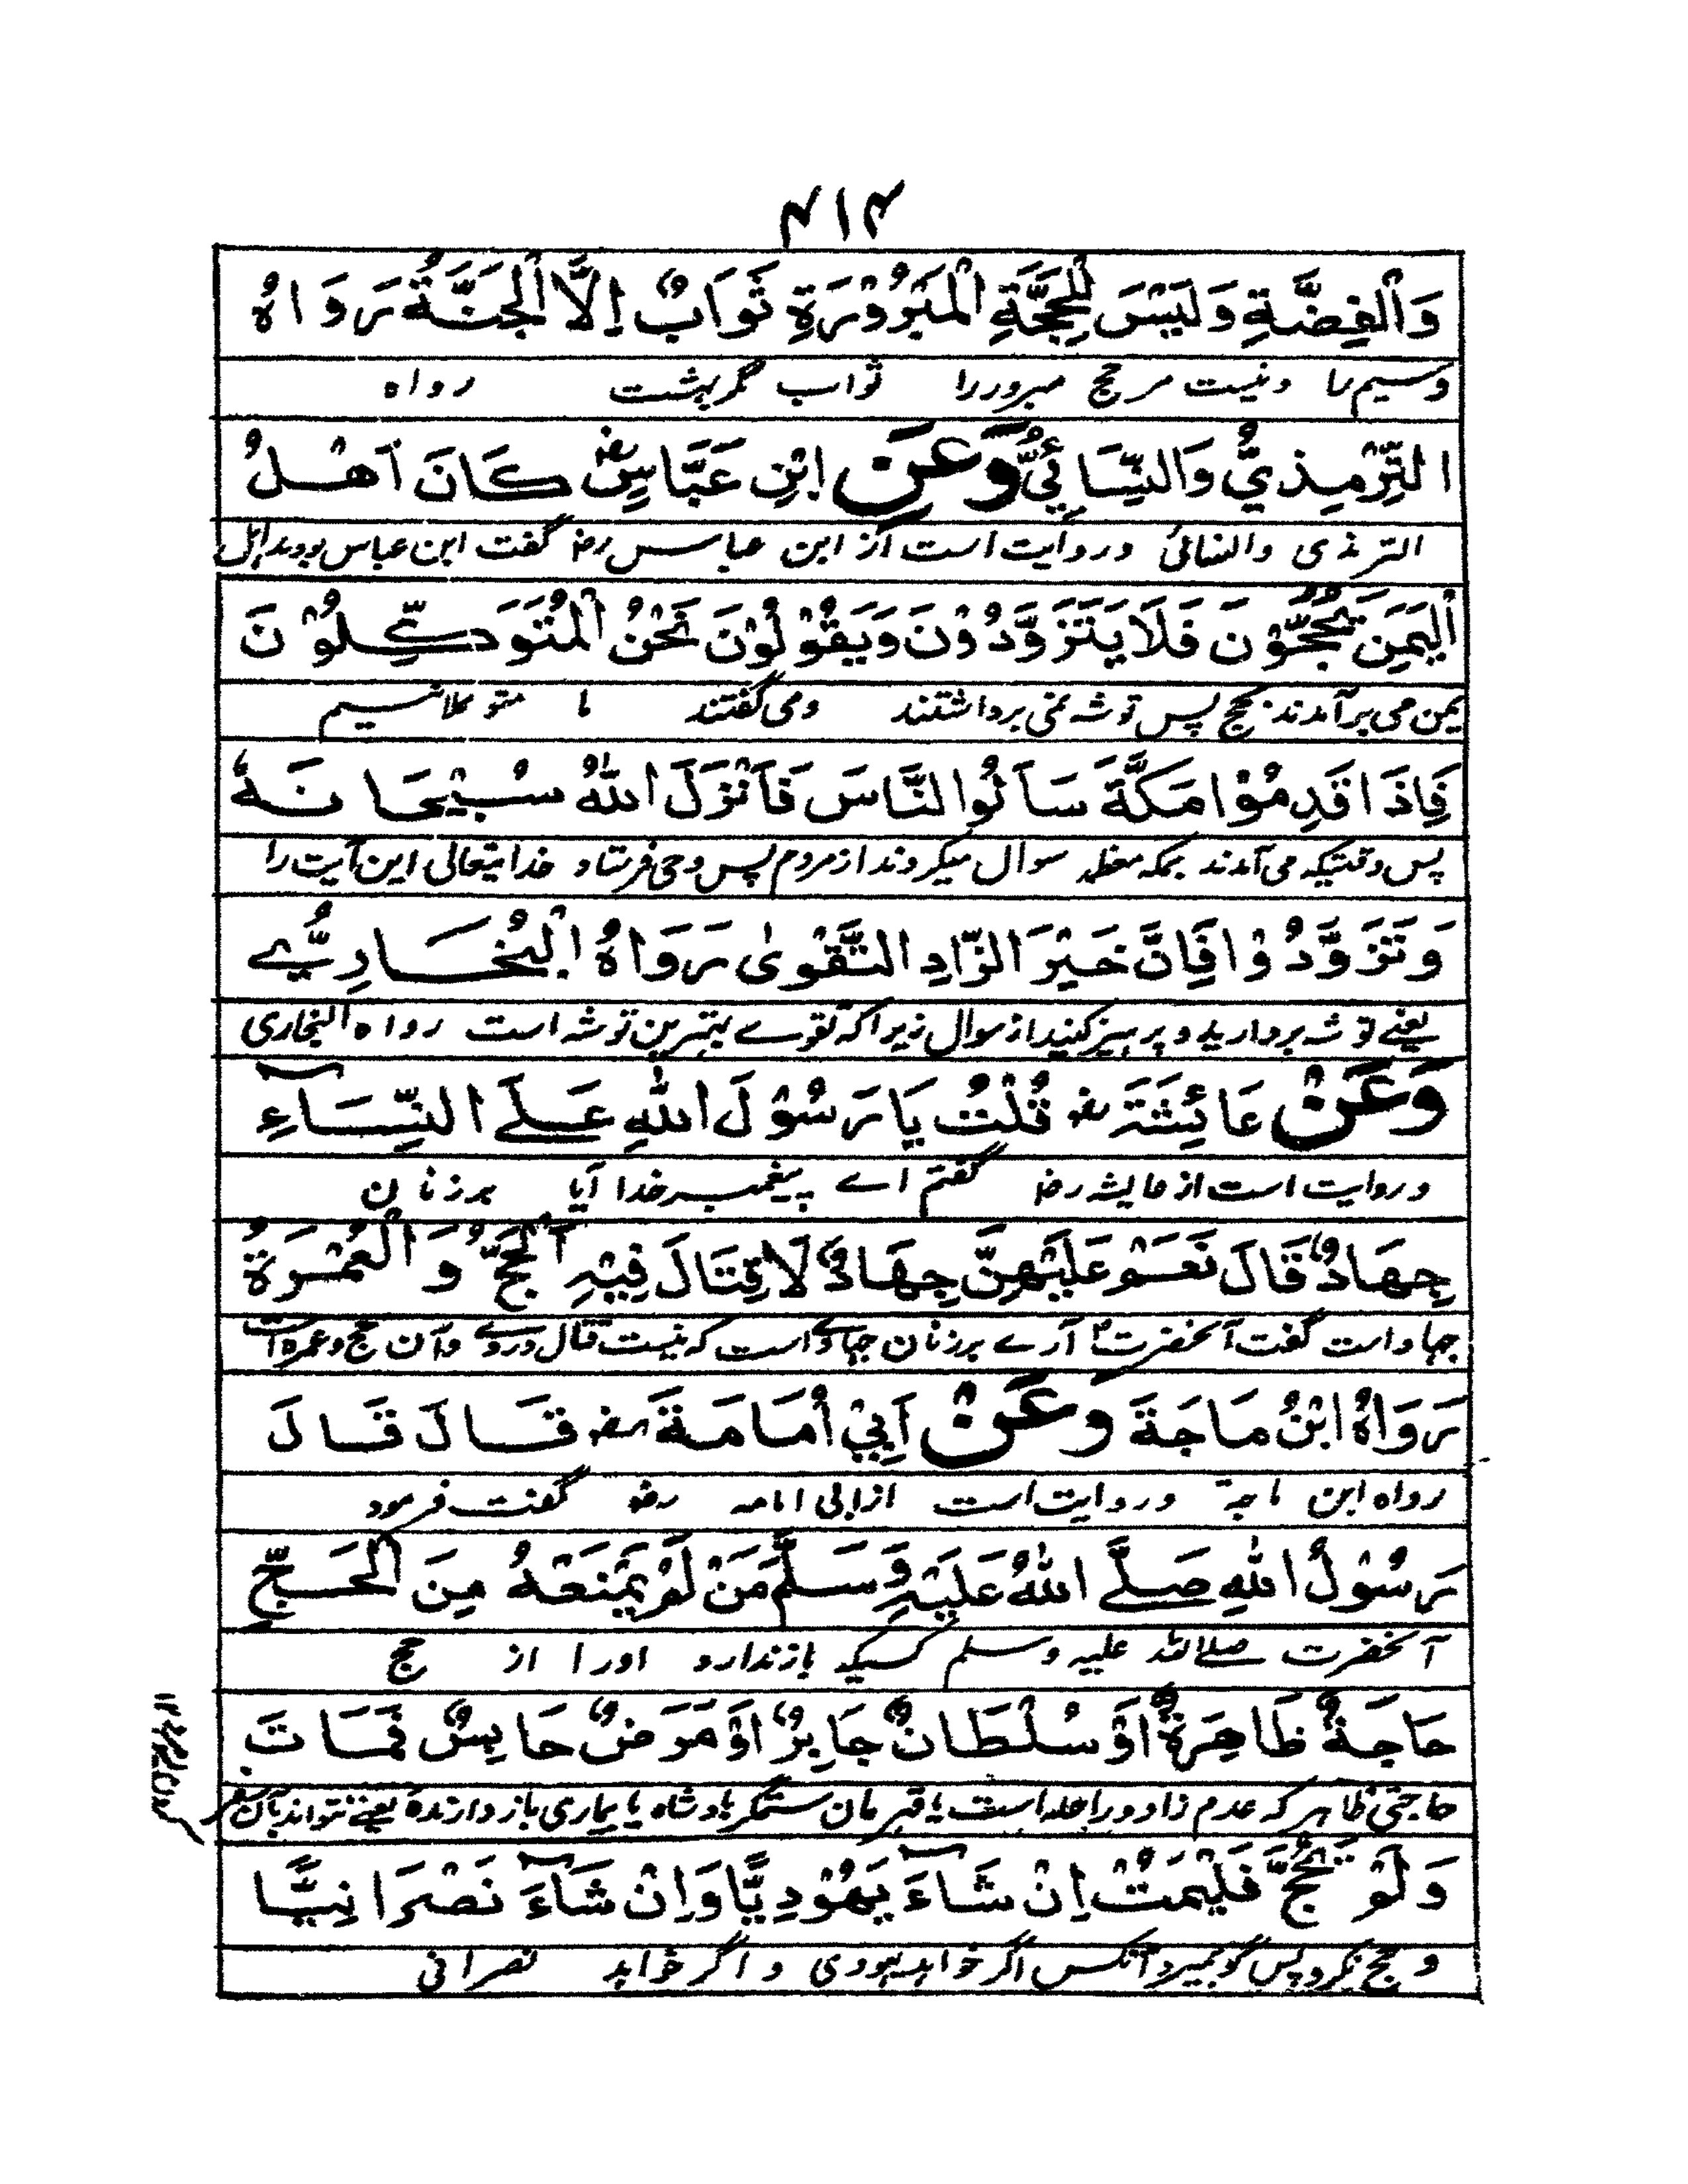 ۴۱۴
وَالْفِضَّةِ وَلَيْسَ لِلْحَجَّةِ الْمَبْرُوْرَةِ ثَوَابٌ اِلَّا الْجَنَّةُ رَوَاهُ
وسیم را ونیست مر حج مبرور را ثواب مگر بهشت رواه
التِّرْمِذِيُّ وَالنَّسَائِيُّ وَعَنِ ابْنِ عَبَّاسٍ رض كَانَ اَهْلُ
الترمذی والنسائی وروایت است از ابن عباس رض گفت ابن عباس بودند اہل
الْيَمَنِ يَحُجُّوْنَ فَلَا يَتَزَوَّدُوْنَ وَيَقُوْلُوْنَ نَحْنُ الْمُتَوَكِّلُوْنَ
یمن می برآمدند بحج پس توشه نمی برداشتند ومی گفتند ما متوکلانیم
فَاِذَا قَدِمُوْا مَكَّةَ سَاَلُوا النَّاسَ فَاَنْزَلَ اللهُ سُبْحَانَهُ
پس وقتیکه می آمدند بمکه معظمه سوال میکردند از مردم پس وحی فرستاد خدایتعالی این آیت را
وَتَزَوَّدُوْا فَاِنَّ خَيْرَ الزَّادِ التَّقْوٰى رَوَاهُ الْبُخَارِيُّ
یعنے توشه بردارید و پرہیز کنید از سوال زیرا که تقوے بہترین توشه است رواه البخاری
وَعَنْ عَائِشَةَ رض قُلْتُ يَا رَسُوْلَ اللهِ عَلَے النِّسَاءِ
وروایت است از عایشه رض گفتم اے پیغمبر خدا آیا برزنان
جِهَادٌ قَالَ نَعَمْ عَلَيْهِنَّ جِهَادٌ لَا قِتَالَ فِيْهِ اَلْحَجُّ وَالْعُمْرَةُ
جہاد است گفت آنحضرت آرے برزنان جہادے است که نیست قتال دروے وآن حج وعمره است
رَوَاهُ ابْنُ مَاجَةَ وَعَنْ اَبِيْ اُمَامَةَ رض قَالَ قَالَ
رواه ابن ماجة وروایت است از ابی امامه رض گفت فرمود
رَسُوْلُ اللهِ صَلَّے اللهُ عَلَيْهِ وَسَلَّمَ مَنْ لَمْ يَمْنَعْهُ مِنَ الْحَجِّ
آنحضرت صلے الله علیه وسلم کسیکه بازندارد اورا از حج
حَاجَةٌ ظَاهِرَةٌ اَوْ سُلْطَانٌ جَايِرٌ اَوْ مَرَضٌ حَابِسٌ فَمَاتَ
حاجتی ظاہر که عدم زاد وراحله است یا قہرمان ستمگر بادشاه یا بیماری باز دارنده یعنے نتواند بآن سفر
وَلَمْ يَحُجَّ فَلْيَمُتْ اِنْ شَاءَ يَهُوْدِيًّا وَاِنْ شَاءَ نَصْرَانِيًّا
و حج نکرد پس گو بمیرد آنکس اگر خواہد یہودی و اگر خواہد نصرانی